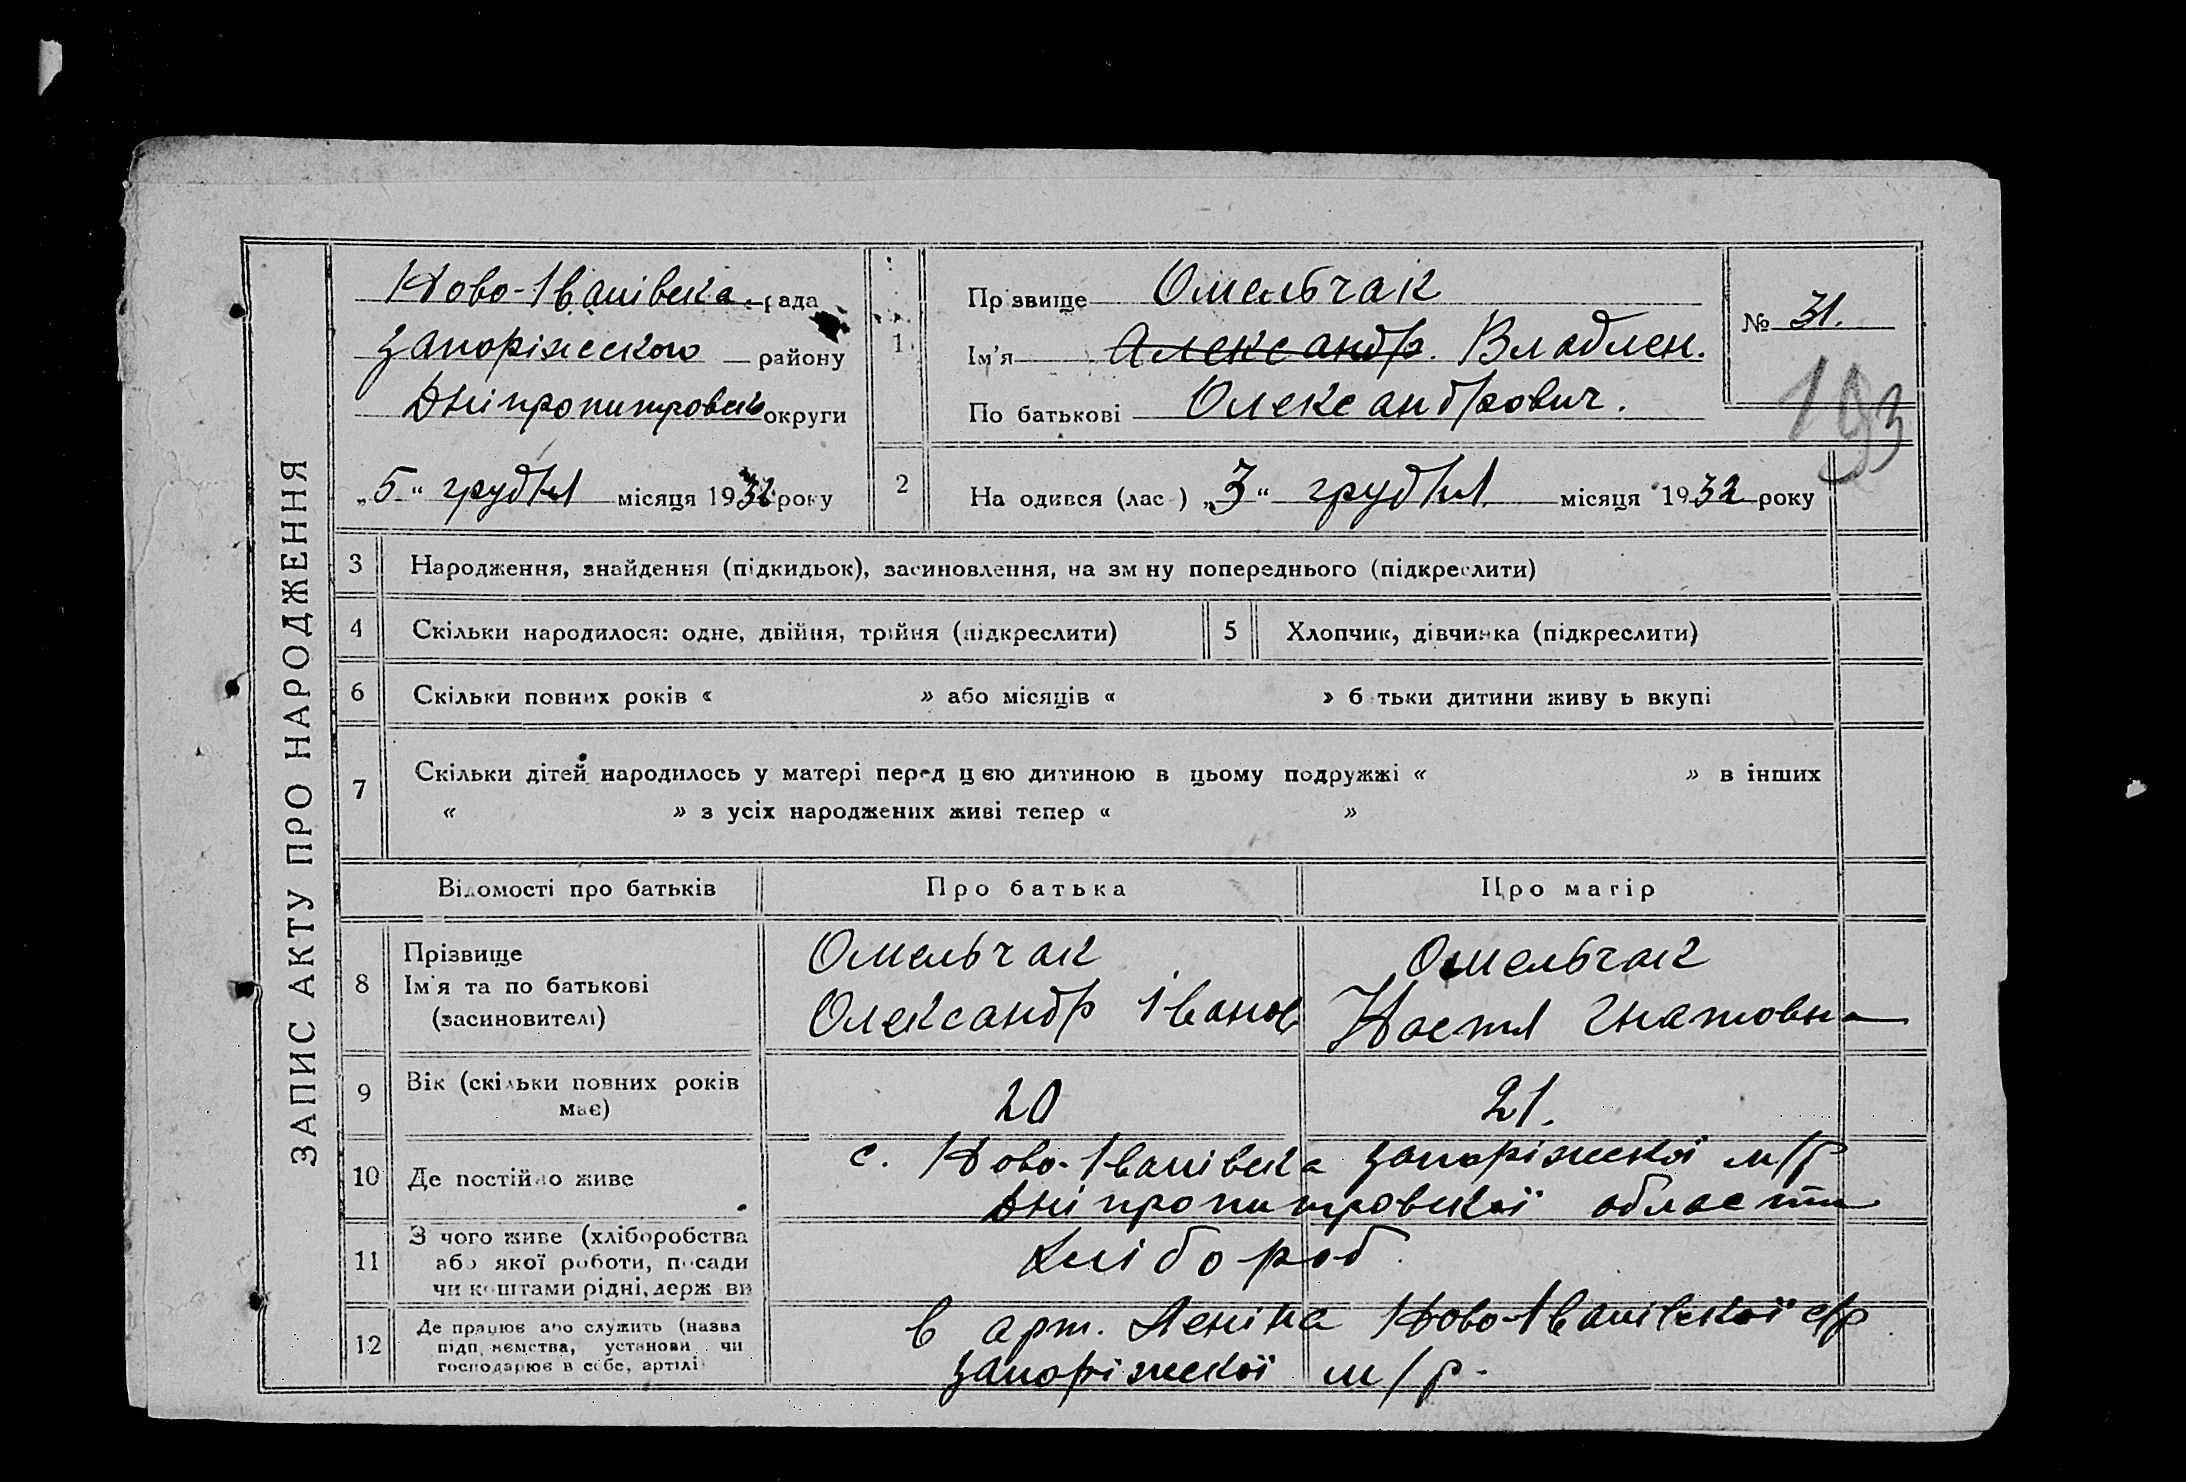 ЗАПИС АКТУ ПРО НАРОДЖЕННЯ
Ново-Іванівска рада
Запоріжского району
Дніпропитровск округи
„5“ грудня місяця 1932 року
1
Прзвище Омельчак
Ім'я Александр. Владлен.
По батькові Олександрович.
№ 31.
193
2
На одився (лас ) „3“ грудня місяця 1932 року
3 Народження, знайдення (підкидьок), засиновлення, на зм ну попереднього (підкреслити)
4 Скільки народилося: одне, двійня, трійня (підкреслити) 5 Хлопчик, дівчинка (підкреслити)
6 Скільки повних років « » або місяців « » б тьки дитини живу ь вкупі
7 Скільки дітей народилось у матері перед цією дитиною в цьому подружжі « » в інших
« » з усіх народжених живі тепер « »
Відомості про батьків Про батька Про матір
8 Прізвище
Ім'я та по батькові
(засиновителі)
Омельчак
Олександр Іванов
Омельчак
Настя Гнатовна
9 Вік (скільки повних років
має)
20 21.
10 Де постійно живе
с. Ново-Іванівска Запоріжскої м/р
Дніпропитровскої области
11 З чого живе (хліборобства
або якої роботи, посади
чи коштами рідні, держ ви
хлібороб.
12 Де працює або служить (назва
підп.иємства, установи чи
господарює в себе, артілі)
в арт. Леніна Ново-Іванівскої с/р
Запоріжскої м/р.